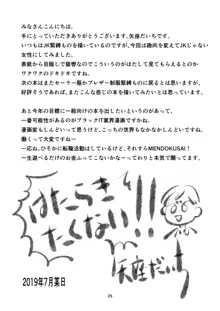 みなさんこんにちは。
手にとっていただきありがとうございます、矢座だいちです。
いつもはJK緊縛ものを描いているのですが、今回は趣向を変えてJKじゃない
女性にしてみました。
表紙から目隠しで猿轡なのでこういうのがはたして見てもらえるのとか
ワクワクのドキドキですね。
次の本はまたセーラー服かブレザー制服緊縛ものに戻るとは思いますが、
好評そうであれば、たまにこんな感じの本を描いてみたいとは思っています。
あと今年の目標に一般向けの本を出したいというのがあって、
一番可能性があるのがブラックIT業界漫画ですかね。
漫画家もしんどいって思うけど、こっちの世界もなかなかしんどいですわ。
働くって大変ですね。
一応ね、ひそかに転職活動はしているけど、それすらMENDOKUSAI！
一生遊べるだけのお金ふってこないかなーってわりと本気で願ってます。
はたらき
たくない!!
矢座だいち
2019年7月某日
25